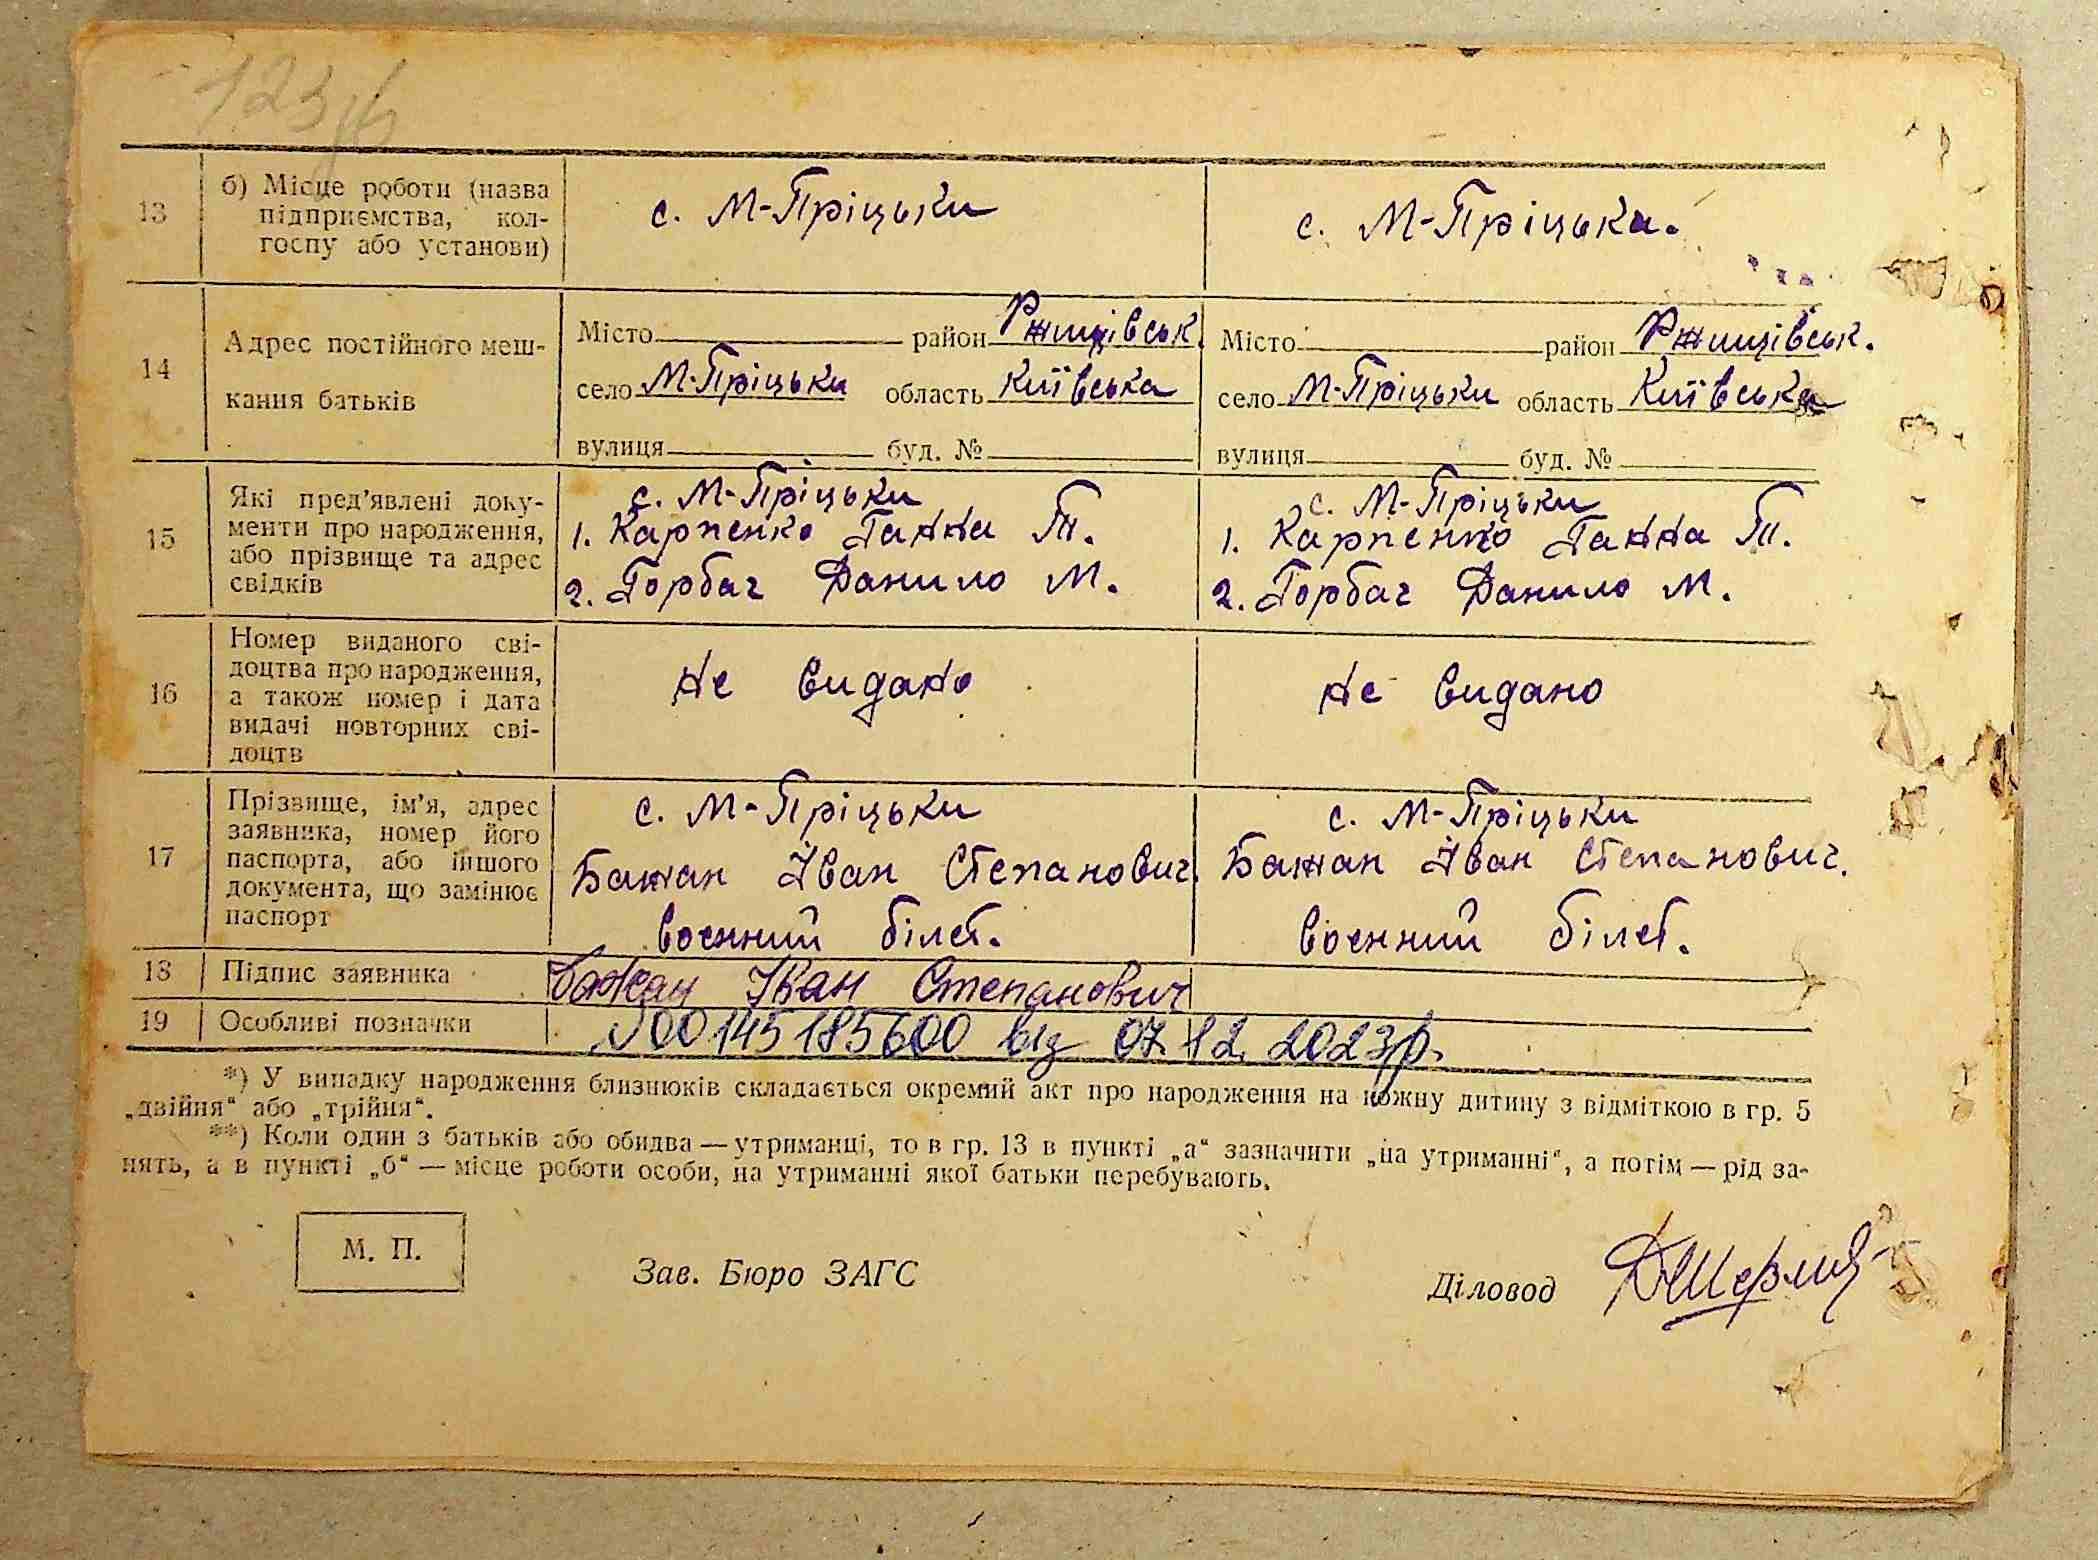 123
13 б) Місце роботи (назва підприємства, кол-
госпу або установи)
с. М-Пріцьки
с. М-Пріцьки.
14 Адрес постійного меш-
кання батьків
Місто район Ржищівськ.
село М-Пріцьки область Київська
вулиця буд. №
Місто район Ржищівськ.
село М-Пріцьки область Київська
вулиця буд. №
15 Які пред'явлені доку-
менти про народження,
або прізвище та адрес
свідків
с. М-Пріцьки
1. Карпенко Ганна Т.
2. Горбач Данило М.
с. М-Пріцьки
1. Карпенко Ганна Т.
2. Горбач Данило М.
16 Номер виданого сві-
доцтва про народження,
а також номер і дата
видачі повторних сві-
доцтв
Не видано
Не видано
17 Прізвище, ім'я, адрес
заявника, номер його
паспорта, або іншого
документа, що замінює
паспорт
с. М-Пріцьки
Бажан Іван Степанович.
воєнний білет.
с. М-Пріцьки
Бажан Іван Степанович.
воєнний білет.
18 Підпис заявника Бажан Іван Степанович
19 Особливі позначки 00145185600 від 07.12.2023р.
*) У випадку народження близнюків складається окремий акт про народження на кожну дитину з відміткою в гр. 5
„двійня“ або „трійня“.
**) Коли один з батьків або обидва — утриманці, то в гр. 13 в пункті „а“ зазначити „на утриманні“, а потім — рід за-
нять, а в пункті „б“ — місце роботи особи, на утриманні якої батьки перебувають.
М. П.
Зав. Бюро ЗАГС
Діловод